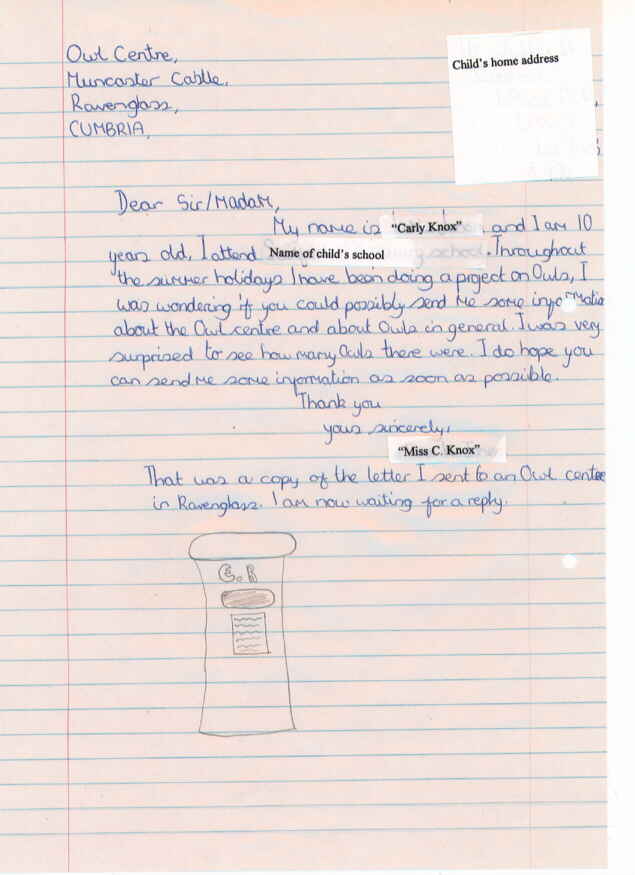 Owl Centre,
Muncaster Castle,
Ravenglass,
CUMBRIA,
Child's home address
Dear Sir/Madam,
My name is "Carly Knox" and I am 10
years old, I attend Name of child's school. Throughout
the summer holidays I have been doing a project on Owls, I
was wondering if you could possibly send me some informatio
about the Owl centre and about Owls in general. I was very
surprised to see how many Owls there were. I do hope you
can send me some information as soon as possible.
Thank you
yours sincerely,
"Miss C. Knox"
That was a copy of the letter I sent to an Owl centre
in Ravenglass. I am now waiting for a reply.
G.R